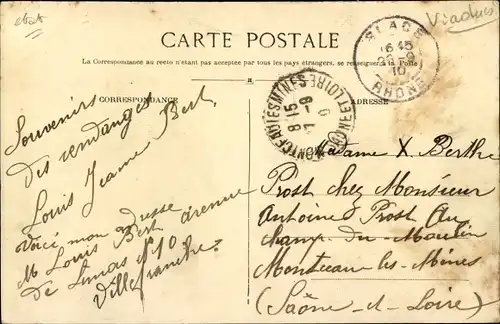 état
Viaduc
CARTE POSTALE
La Correspondance au recto n'étant pas acceptée par tous les pays étrangers, se renseigner à la Poste
CORRESPONDANCE
ADRESSE
BLACÉ
16 45
10
RHONE
MONTCEAU-LES-MINES
SAONE-ET-LOIRE
8 15
Souvenirs
des vendanges
Louis Jeanne Bert.
Voici mon adresse
M Louis Bert avenue
de Limas N° 10
Villefranche
Madame X. Berthe
Prost chez Monsieur
Antoine Prost Au
champ-du-Moulin
Montceau-les-Mines
(Saône-et-Loire)